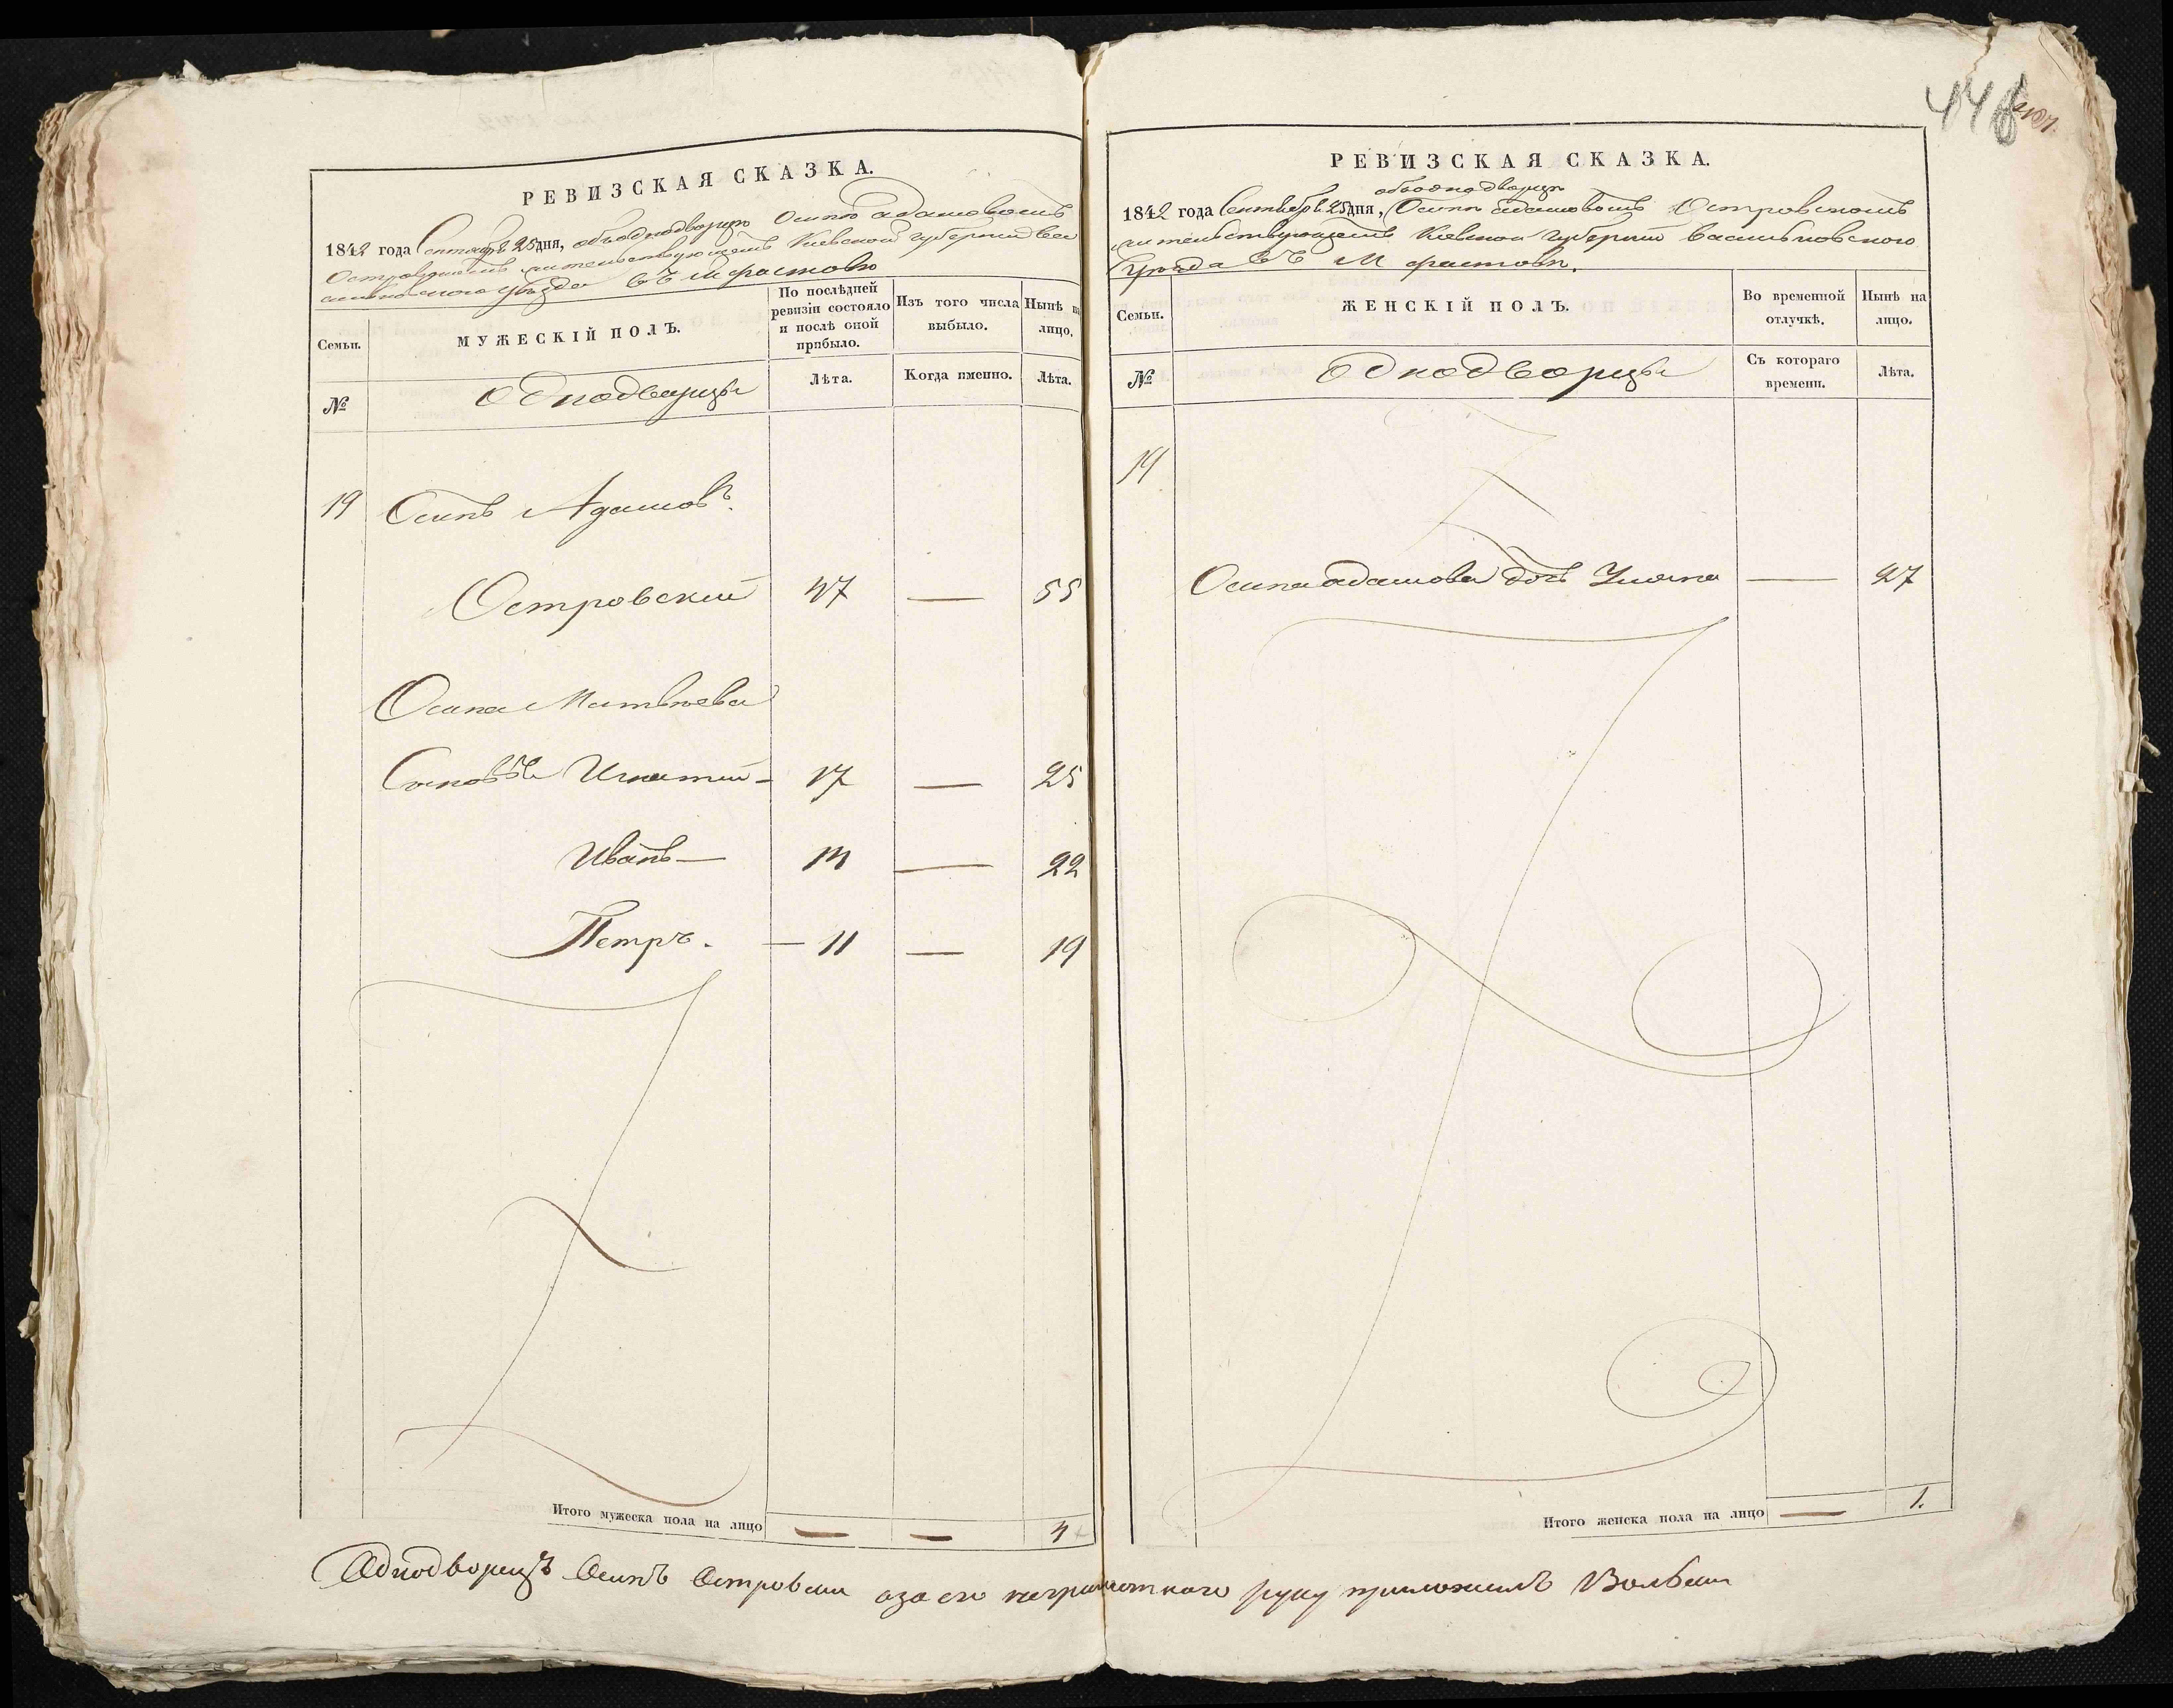 РЕВИЗСКАЯ СКАЗКА.
1842 года Сентября 25 дня, объ однодворцѣ Осипѣ Адамовомъ
Островскомъ жительствующемъ Кіевской губерніи Ва
сильковского уѣзда въ М Фастовѣ
Семьи.
МУЖЕСКІЙ ПОЛЪ.
По послѣдней ревизіи состояло и послѣ оной прибыло.
Изъ того числа выбыло.
Нынѣ на лицо.
№
Однодворцы
Лѣта.
Когда именно.
Лѣта.
19 Осипъ Адамовъ.
Островскій 47 — 55
Осипа
Сыновья Игнатій - 17 — 25
Иванъ — 14 — 22
Петръ. — 11 — 19
Итого мужеска пола на лицо — — 4
446
РЕВИЗСКАЯ СКАЗКА.
объ однодворцѣ
1842 года Сентября 25 дня, Осипѣ Адамовомъ Островскомъ
жительствующемъ Кіевской губерніи Васильковского
уѣзда въ М Фастовѣ.
Семьи.
ЖЕНСКІЙ ПОЛЪ.
Во временной отлучкѣ.
Нынѣ на лицо.
№
Однодворцы
Съ котораго времени.
Лѣта.
19
Осипа Адамова дочь — 27
Итого женска пола на лицо — 1.
Однодворецъ Осипъ Островски а за его неграмотного руку приложилъ